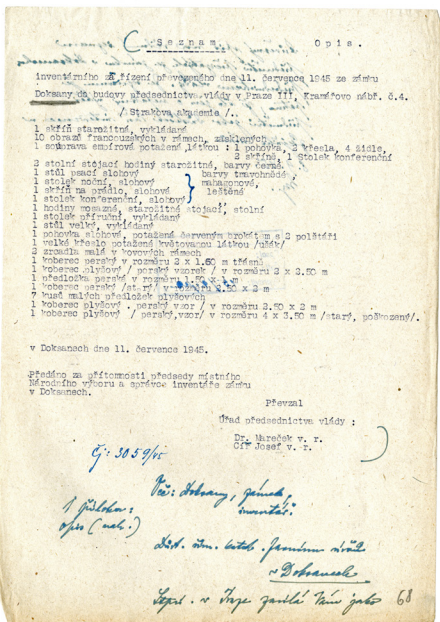 S e z n a m   O p i s .
inventárního zařízení převezeného dne 11. července 1945 ze zámku
Doksany do budovy předsednictva vlády v Praze III, Kramářovo nábř. č.4.
/ Strakova akademie /.
1 skříň starožitná, vykládaná
10 obrazů francouzských v rámech, zasklených
1 souprava empírová potažená látkou : 1 pohovka, 2 křesla, 4 židle,
2 skříně, 1 stolek konferenční
2 stolní stojací hodiny starožitné, barvy černé,
1 stůl psací slohový barvy tmavohnědé
1 stolek noční, slohový mahagonové,
1 skříň na prádlo, slohová leštěné
1 stolek konferenční, slohový
1 hodiny mosazné, starožitné stojací, stolní
1 stolek příruční, vykládaný
1 stůl velký, vykládaný
1 pohovka slohová, potažená červeným brokátem s 2 polštáři
1 velké křeslo potažené květovanou látkou /ušák/
2 zrcadla malá v kovových rámech
1 koberec perský v rozměru 2 x 1.60 m třásně
1 koberec plyšový / perský vzorek / v rozměru 2 x 2.50 m
1 předložka perská v rozměru 1.50 x 1 m
1 koberec perský /starý/ v rozměru x 2 m
7 kusů malých předložek plyšových
1 koberec plyšový / perský vzor / v rozměru 2.50 x 2 m
1 koberec plyšový / perský,vzor/ v rozměru 4 x 3.50 m /starý, poškozený/.
v Doksanech dne 11. července 1945.
Předáno za přítomnosti předsedy místního
Národního výboru a správce inventáře zámku
v Doksanech.
Převzal
Úřad předsednictva vlády :
Dr. Mareček v. r.
Cíř Josef v. r.
Čj: 3059/45
Věc: Doksany, zámek,
inventář.
1
opis
v Doksanech
v Praze zasílá Vám jako
68